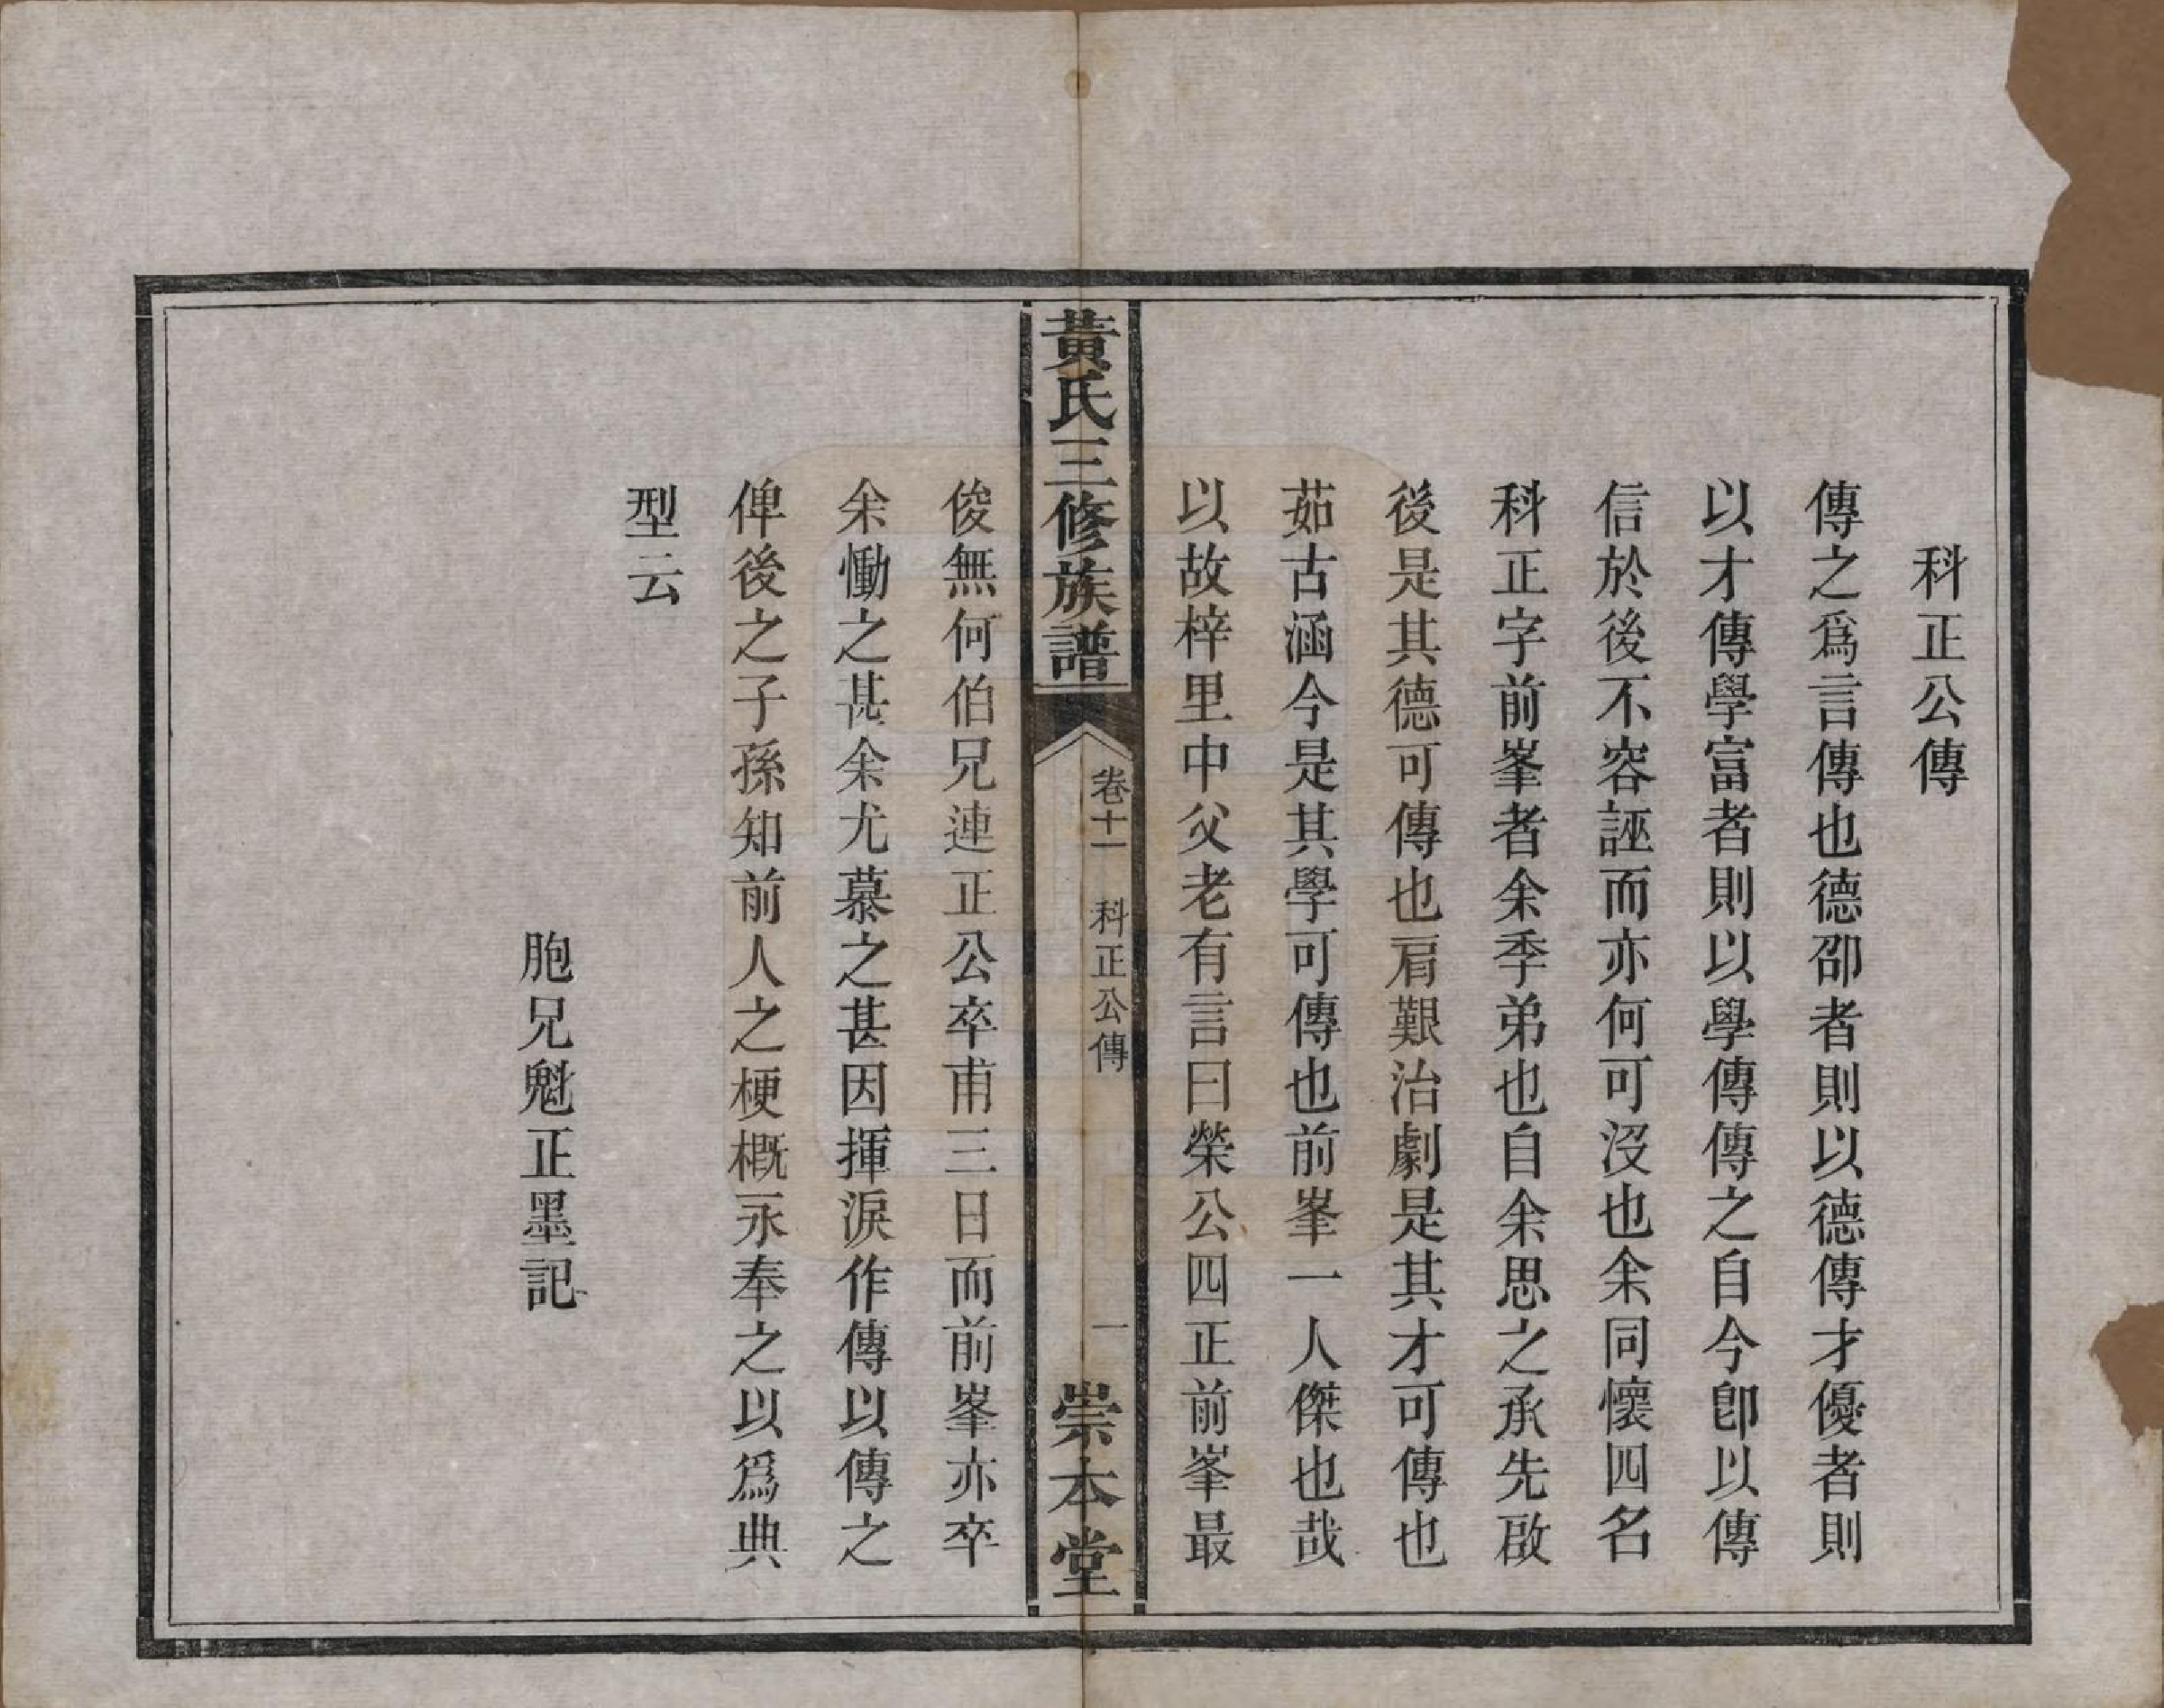 科正公傳
傳之爲言傳也德邵者則以德傳才優者則
以才傳學富者則以學傳傳之自今卽以傳
信於後不容誣而亦何可沒也余同懷四名
科正字前峯者余季弟也自余思之承先啟
後是其德可傳也肩艱治劇是其才可傳也
茹古涵今是其學可傳也前峯一人傑也哉
以故梓里中父老有言曰榮公四正前峯最
黃氏三修族譜
卷十一 科正公傳
一
崇本堂
俊無何伯兄連正公卒甫三日而前峯亦卒
余慟之甚余尤慕之甚因揮淚作傳以傳之
俾後之子孫知前人之梗概永奉之以爲典
型云
胞兄魁正墨記